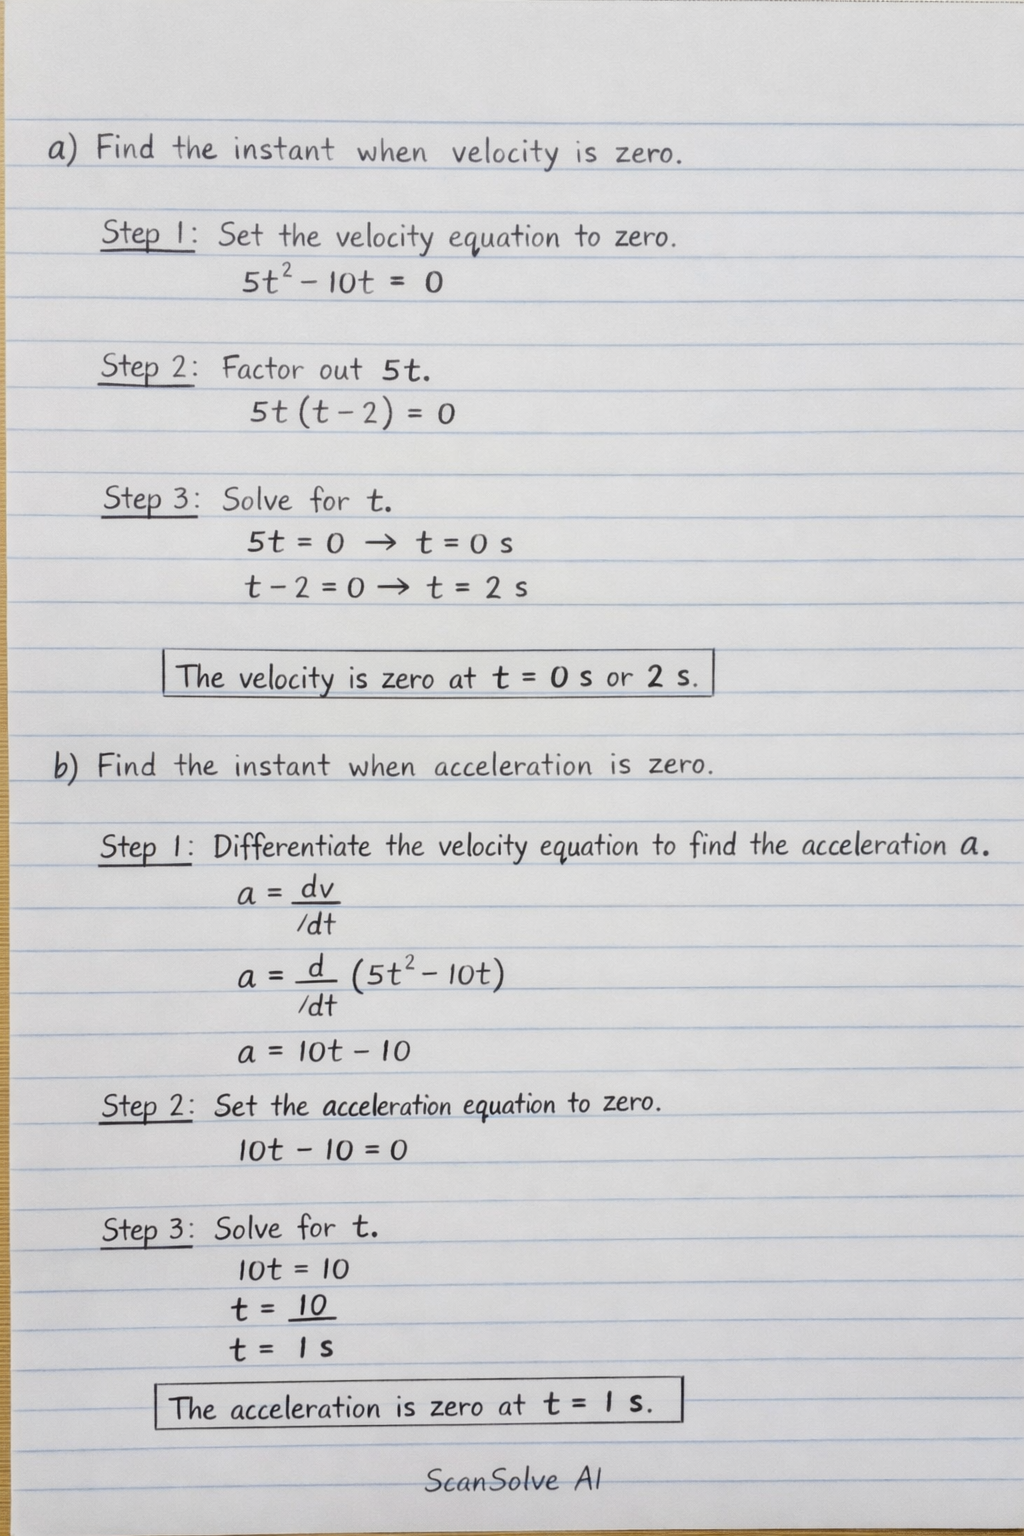 a) Find the instant when velocity is zero.
Step 1: Set the velocity equation to zero.
5t² − 10t = 0
Step 2: Factor out 5t.
5t (t − 2) = 0
Step 3: Solve for t.
5t = 0 → t = 0 s
t − 2 = 0 → t = 2 s
The velocity is zero at t = 0 s or 2 s.
b) Find the instant when acceleration is zero.
Step 1: Differentiate the velocity equation to find the acceleration a.
a = dv
/dt
a = d (5t² − 10t)
/dt
a = 10t − 10
Step 2: Set the acceleration equation to zero.
10t − 10 = 0
Step 3: Solve for t.
10t = 10
t = 10
t = 1 s
The acceleration is zero at t = 1 s.
ScanSolve AI